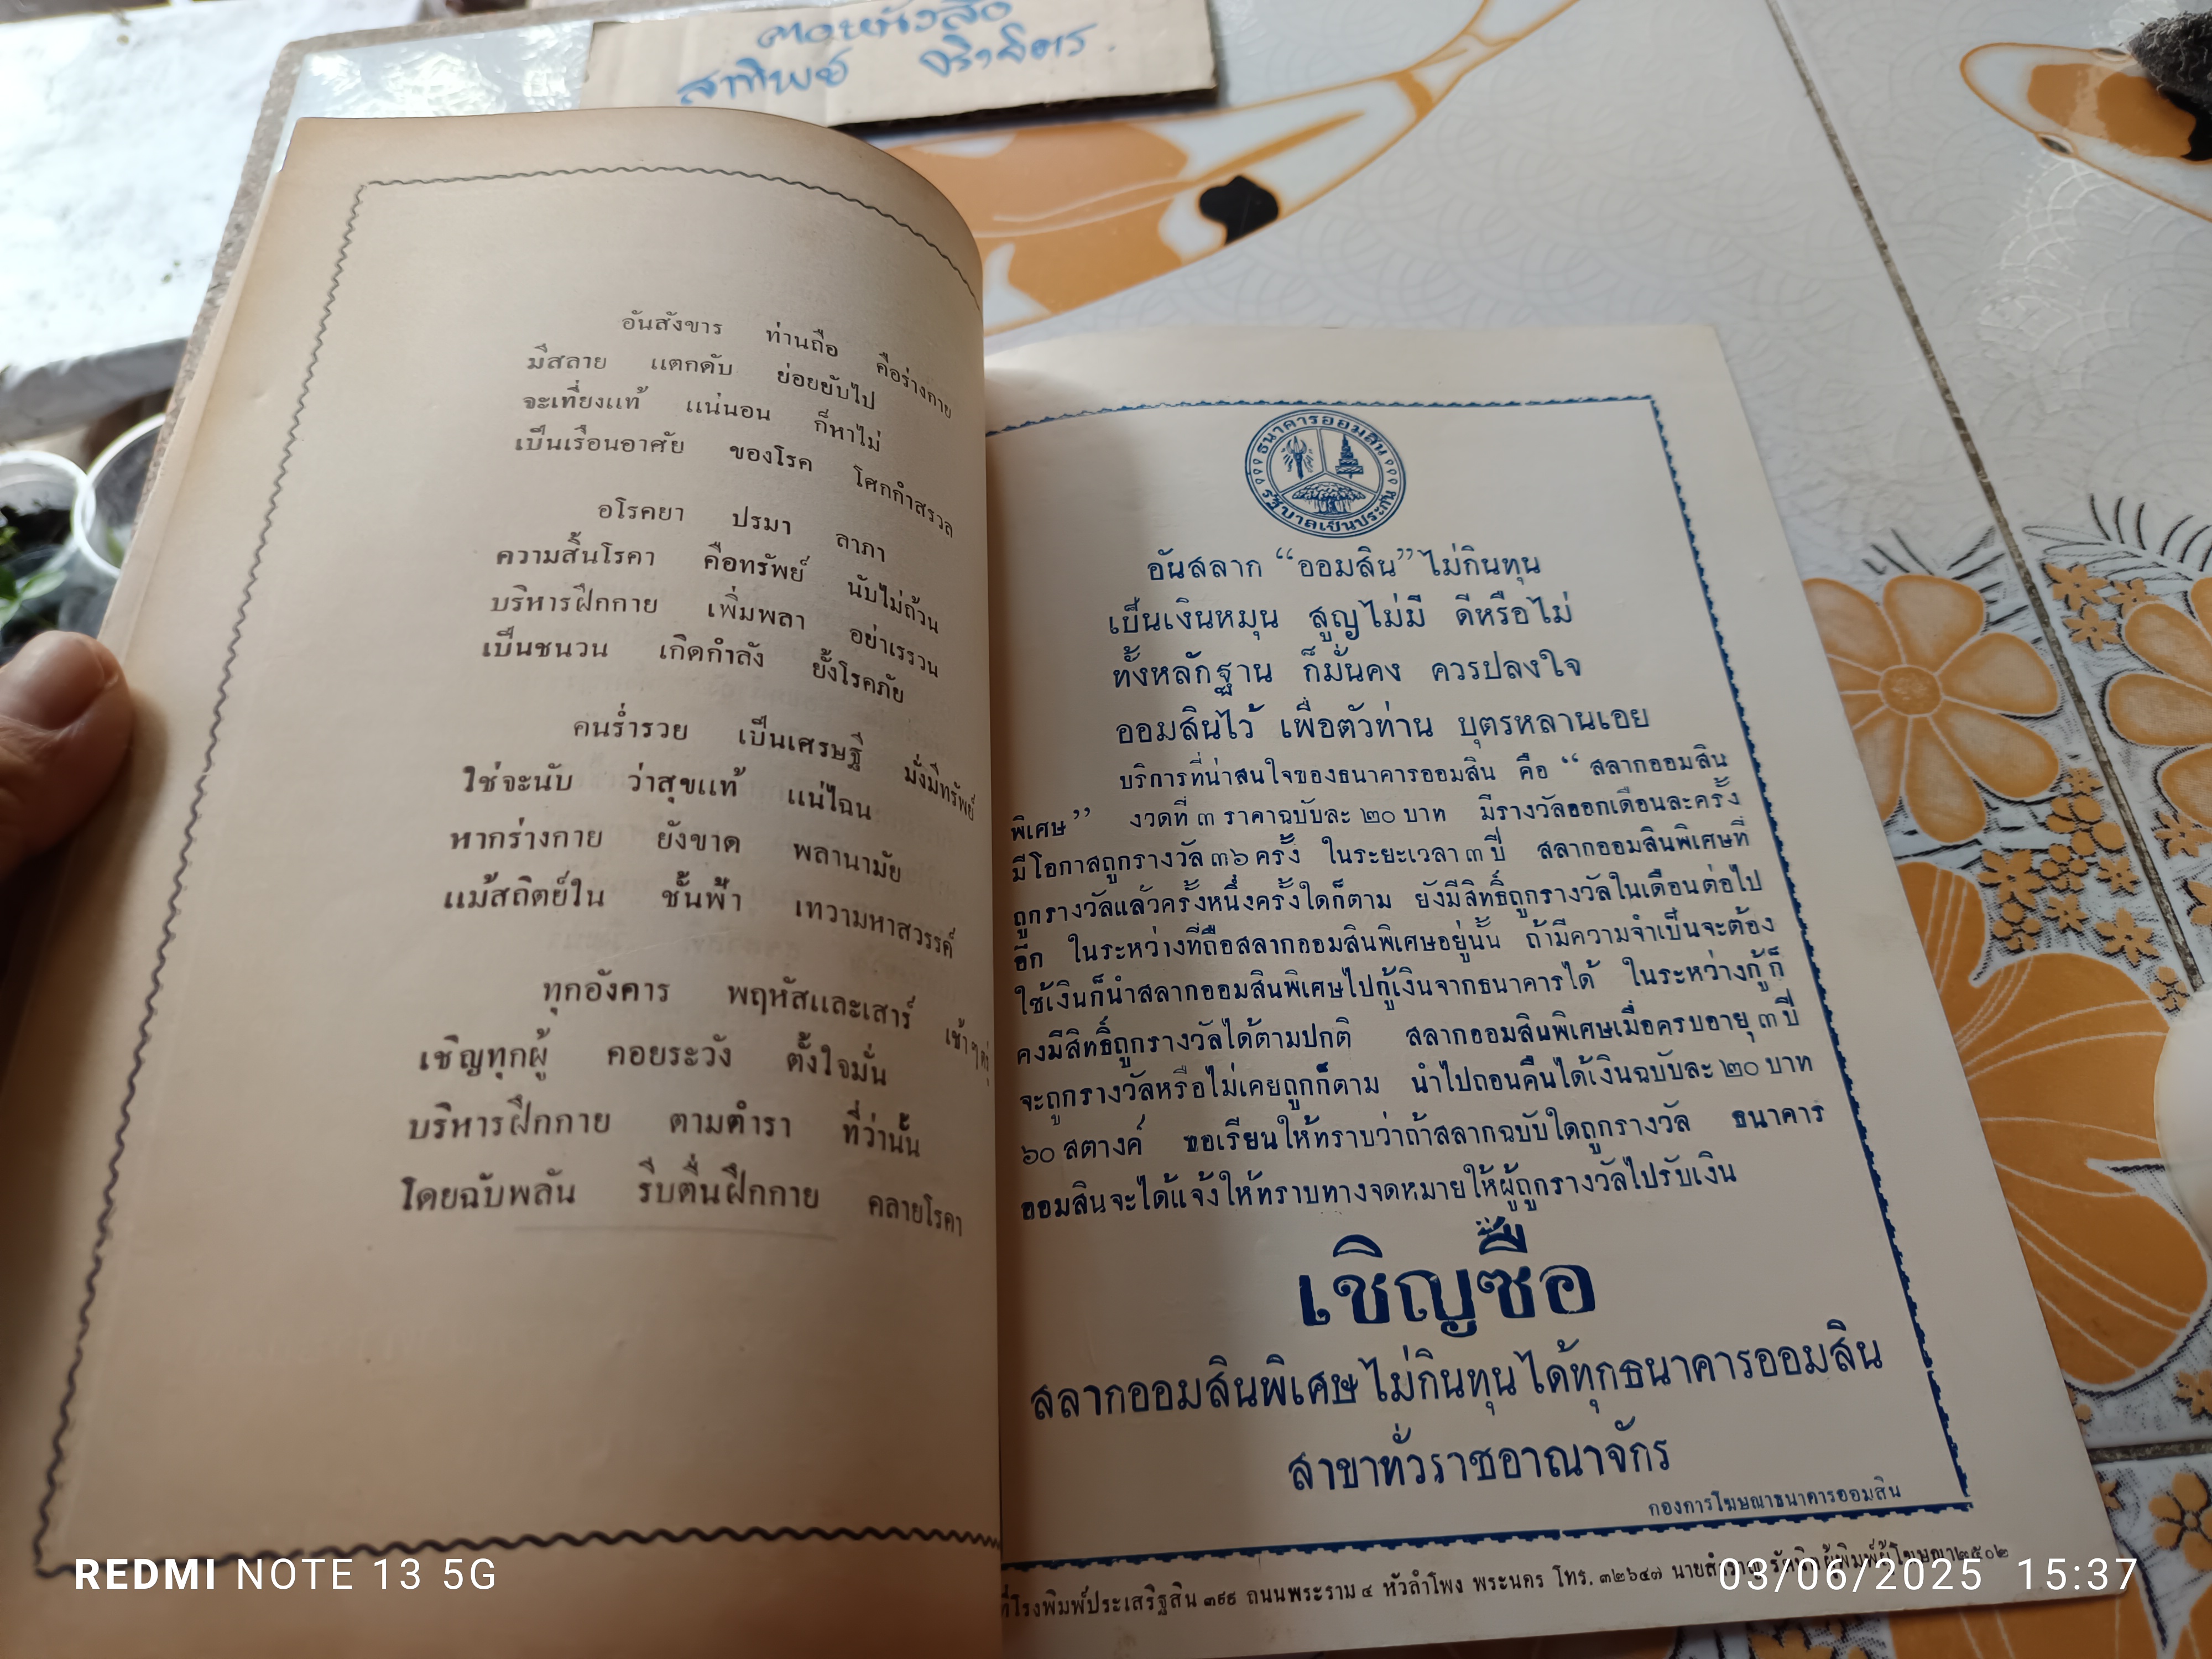 อันสังขาร ท่านถือ คือร่างกาย
มีสลาย แตกดับ ย่อยยับไป
จะเที่ยงแท้ แน่นอน ก็หาไม่
เป็นเรือนอาศัย ของโรค โศกกำสรวล
อโรคยา ปรมา ลาภา
ความสิ้นโรคา คือทรัพย์ นับไม่ถ้วน
บริหารฝึกกาย เพิ่มพลา อย่าเรรวน
เป็นชนวน เกิดกำลัง ยั้งโรคภัย
คนร่ำรวย เป็นเศรษฐี มั่งมีทรัพย์
ใช่จะนับ ว่าสุขแท้ แน่ไฉน
หากร่างกาย ยังขาด พลานามัย
แม้สถิตย์ใน ชั้นฟ้า เทวามหาสวรรค์
ทุกอังคาร พฤหัสและเสาร์ เช้าๆ
เชิญทุกผู้ คอยระวัง ตั้งใจมั่น
บริหารฝึกกาย ตามตำรา ที่ว่านั้น
โดยฉับพลัน รีบตื่นฝึกกาย คลายโรคา
ธนาคารออมสิน
รัฐบาลเป็นประกัน
อันสลาก “ออมสิน” ไม่กินทุน
เป็นเงินหมุน สูญไม่มี ดีหรือไม่
ทั้งหลักฐาน ก็มั่นคง ควรปลงใจ
ออมสินไว้ เพื่อตัวท่าน บุตรหลานเอย
บริการที่น่าสนใจของธนาคารออมสิน คือ “ สลากออมสิน
พิเศษ ” งวดที่ ๓ ราคาฉบับละ ๒๐ บาท มีรางวัลออกเดือนละครั้ง
มีโอกาสถูกรางวัล ๓๖ ครั้ง ในระยะเวลา ๓ ปี สลากออมสินพิเศษที่
ถูกรางวัลแล้วครั้งหนึ่งครั้งใดก็ตาม ยังมีสิทธิ์ถูกรางวัลในเดือนต่อไป
อีก ในระหว่างที่ถือสลากออมสินพิเศษอยู่นั้น ถ้ามีความจำเป็นจะต้อง
ใช้เงินก็นำสลากออมสินพิเศษไปกู้เงินจากธนาคารได้ ในระหว่างกู้ก็
คงมีสิทธิ์ถูกรางวัลได้ตามปกติ สลากออมสินพิเศษเมื่อครบอายุ ๓ ปี
จะถูกรางวัลหรือไม่เคยถูกก็ตาม นำไปถอนคืนได้เงินฉบับละ ๒๐ บาท
๖๐ สตางค์ ขอเรียนให้ทราบว่าถ้าสลากฉบับใดถูกรางวัล ธนาคาร
ออมสินจะได้แจ้งให้ทราบทางจดหมายให้ผู้ถูกรางวัลไปรับเงิน
เชิญซื้อ
สลากออมสินพิเศษไม่กินทุนได้ทุกธนาคารออมสิน
สาขาทั่วราชอาณาจักร
กองการโฆษณาธนาคารออมสิน
ที่โรงพิมพ์ประเสริฐสิน ๓๙๙ ถนนพระราม ๔ หัวลำโพง พระนคร โทร. ๓๒๖๔๗ ผู้พิมพ์ผู้โฆษณา ๒๕๐๒
REDMI NOTE 13 5G
03/06/2025 15:37